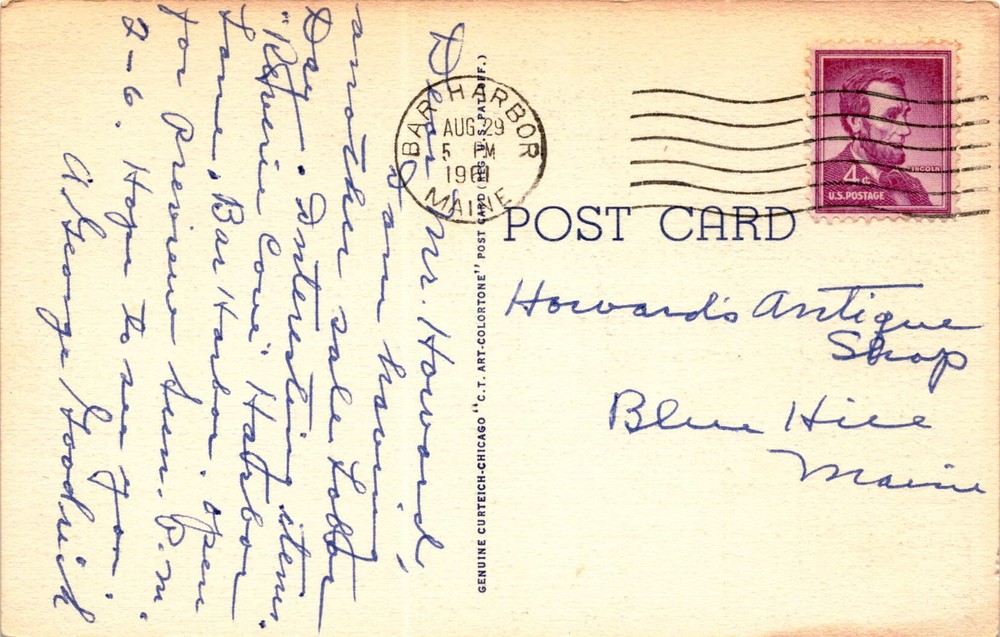 Dear Mr. Howard,
I am having
another sale Labor
Day. Interesting items.
Cove" Harbor
Lane, Bar Harbor. open
for Preview Sun. P.m.
2-6. Hope to see you.
A George Goodrich
GENUINE CURTEICH-CHICAGO "C.T. ART-COLORTONE" POST CARD (REG. U.S. PAT. OFF.)
BAR HARBOR
AUG 29
5 PM
1961
MAINE
LINCOLN
4¢
U.S. POSTAGE
POST CARD
Howard's Antique
Shop
Blue Hill
Maine